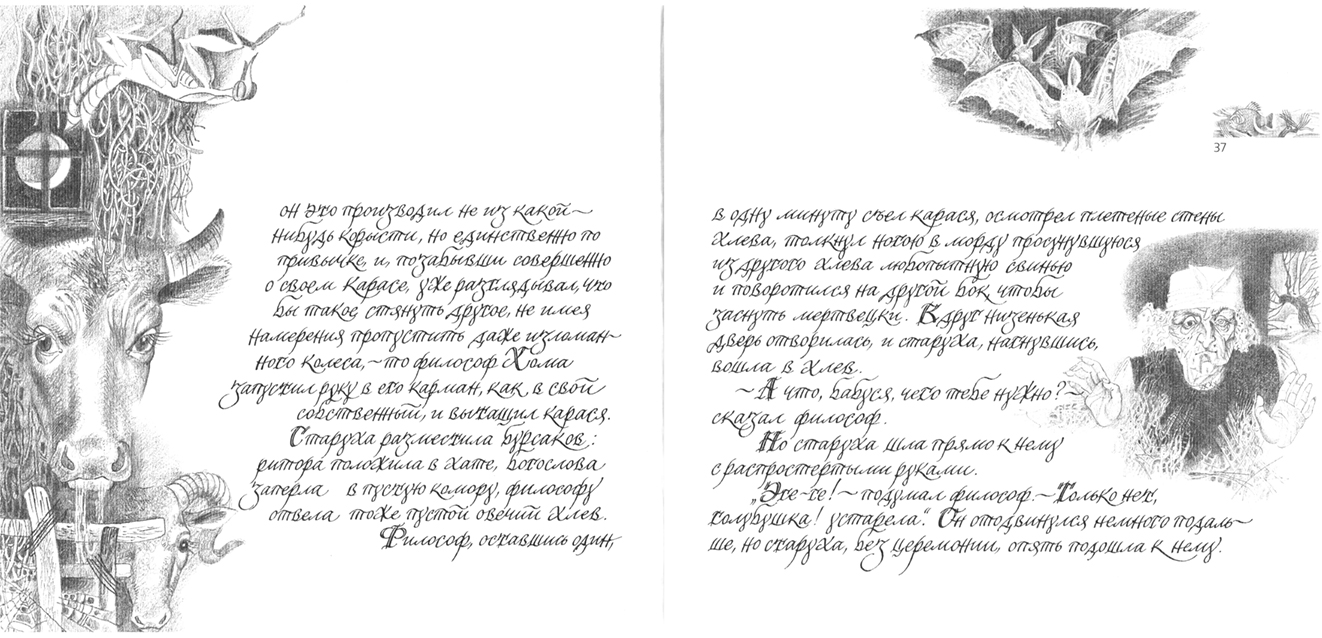 он это производил не из какой~
нибудь корысти, но единственно по
привычке, и, позабывши совершенно
о своем карасе, уже разглядывал, что
бы такое стянуть другое, не имея
намерения пропустить даже изломан~
ного колеса,~то философ Хома
запустил руку в его карман, как в свой
собственный, и вытащил карася.
Старуха разместила бурсаков:
ритора положила в хате, богослова
заперла в пустую комору, философу
отвела тоже пустой овечий хлев.
Философ, оставшись один,
37
в одну минуту съел карася, осмотрел плетеные стены
хлева, толкнул ногою в морду проснувшуюся
из другого хлева любопытную свинью
и поворотился на другой бок, чтобы
заснуть мертвецки. Вдруг низенькая
дверь отворилась, и старуха, нагнувшись,
вошла в хлев.
~А что, бабуся, чего тебе нужно?~
сказал философ.
Но старуха шла прямо к нему
с распростертыми руками.
„Эге-ге!~подумал философ.~Только нет,
голубушка! устарела“. Он отодвинулся немного подаль~
ше, но старуха, без церемонии, опять подошла к нему.